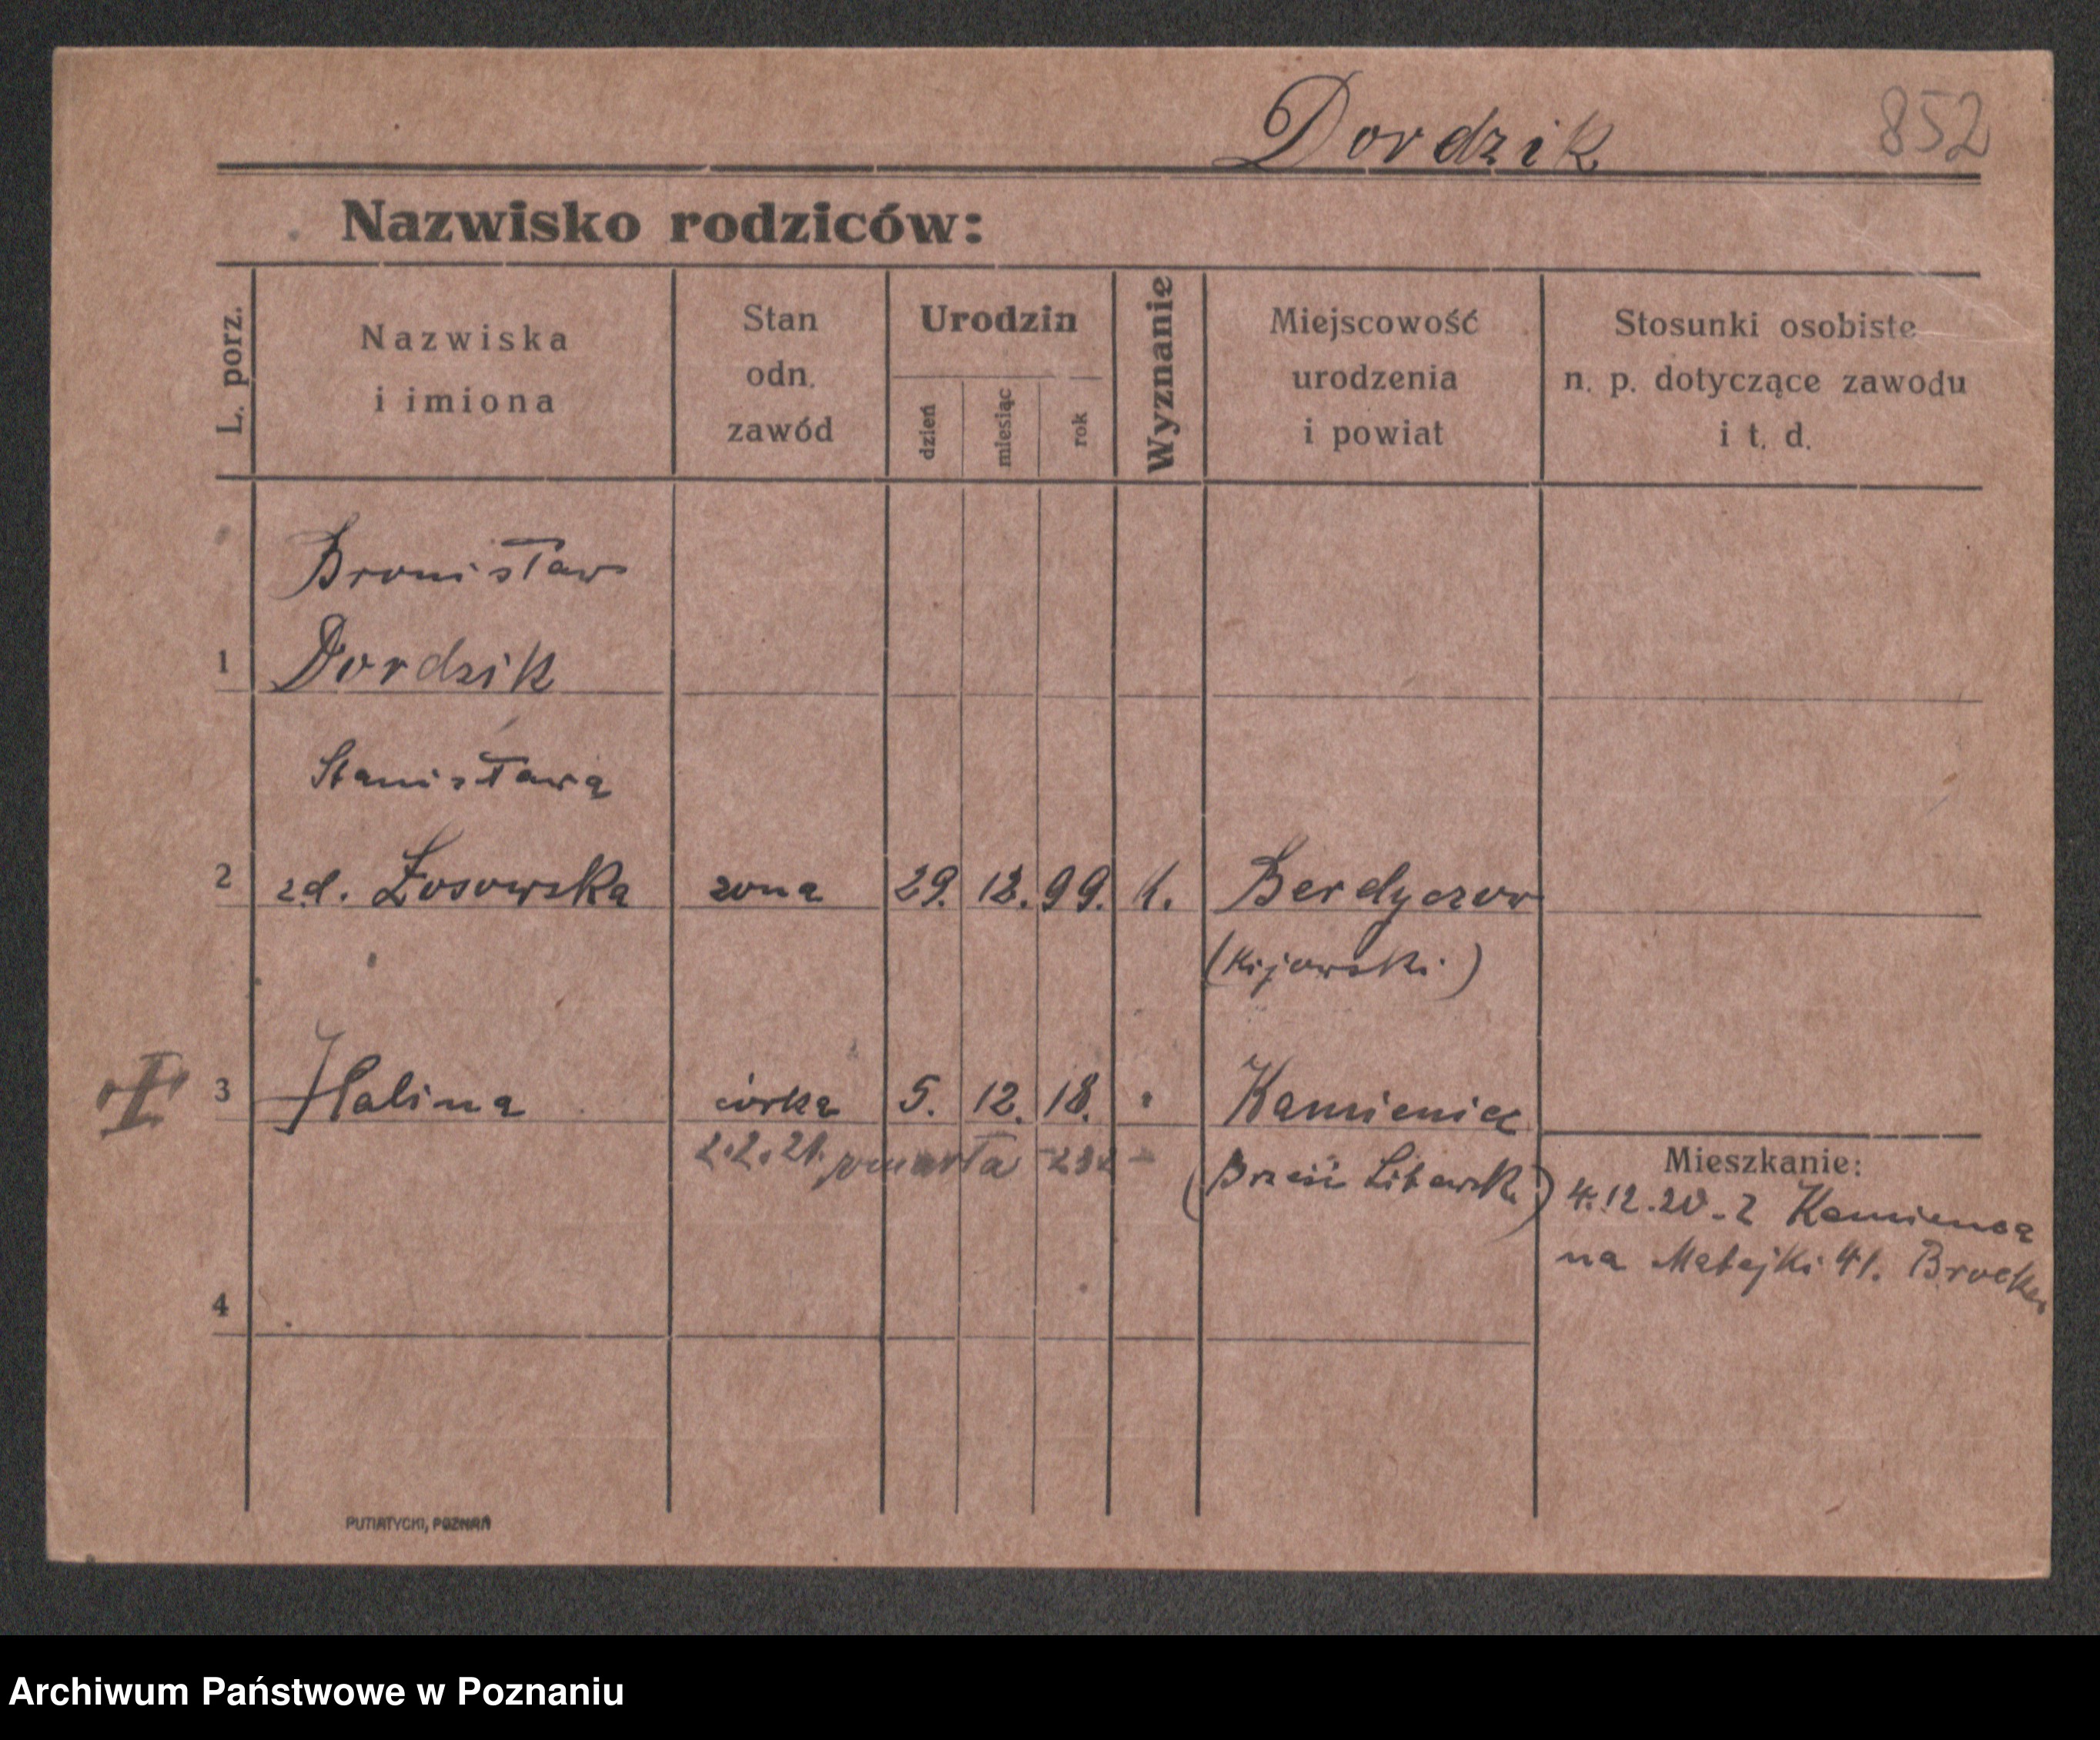 Dordzik 852
Nazwisko rodziców:
L. porz.
Nazwiska
i imiona
Stan
odn.
zawód
Urodzin
dzień
miesiąc
rok
Wyznanie
Miejscowość
urodzenia
i powiat
Stosunki osobiste
n. p. dotyczące zawodu
i t. d.
Bronisław
1 Dordzik
Stanisława
2 zd. Łosowska zona 29. 12. 99. k. Berdyczow
(Kijowski)
3 Halina córka 5. 12. 18. " Kamieniec
2.2.21. zmarła
(Brześć Litewsk.)
Mieszkanie:
4.12.20. z Kamienca
na Matejki 41.
4
PUTIATYCKI, POZNAŃ
Archiwum Państwowe w Poznaniu